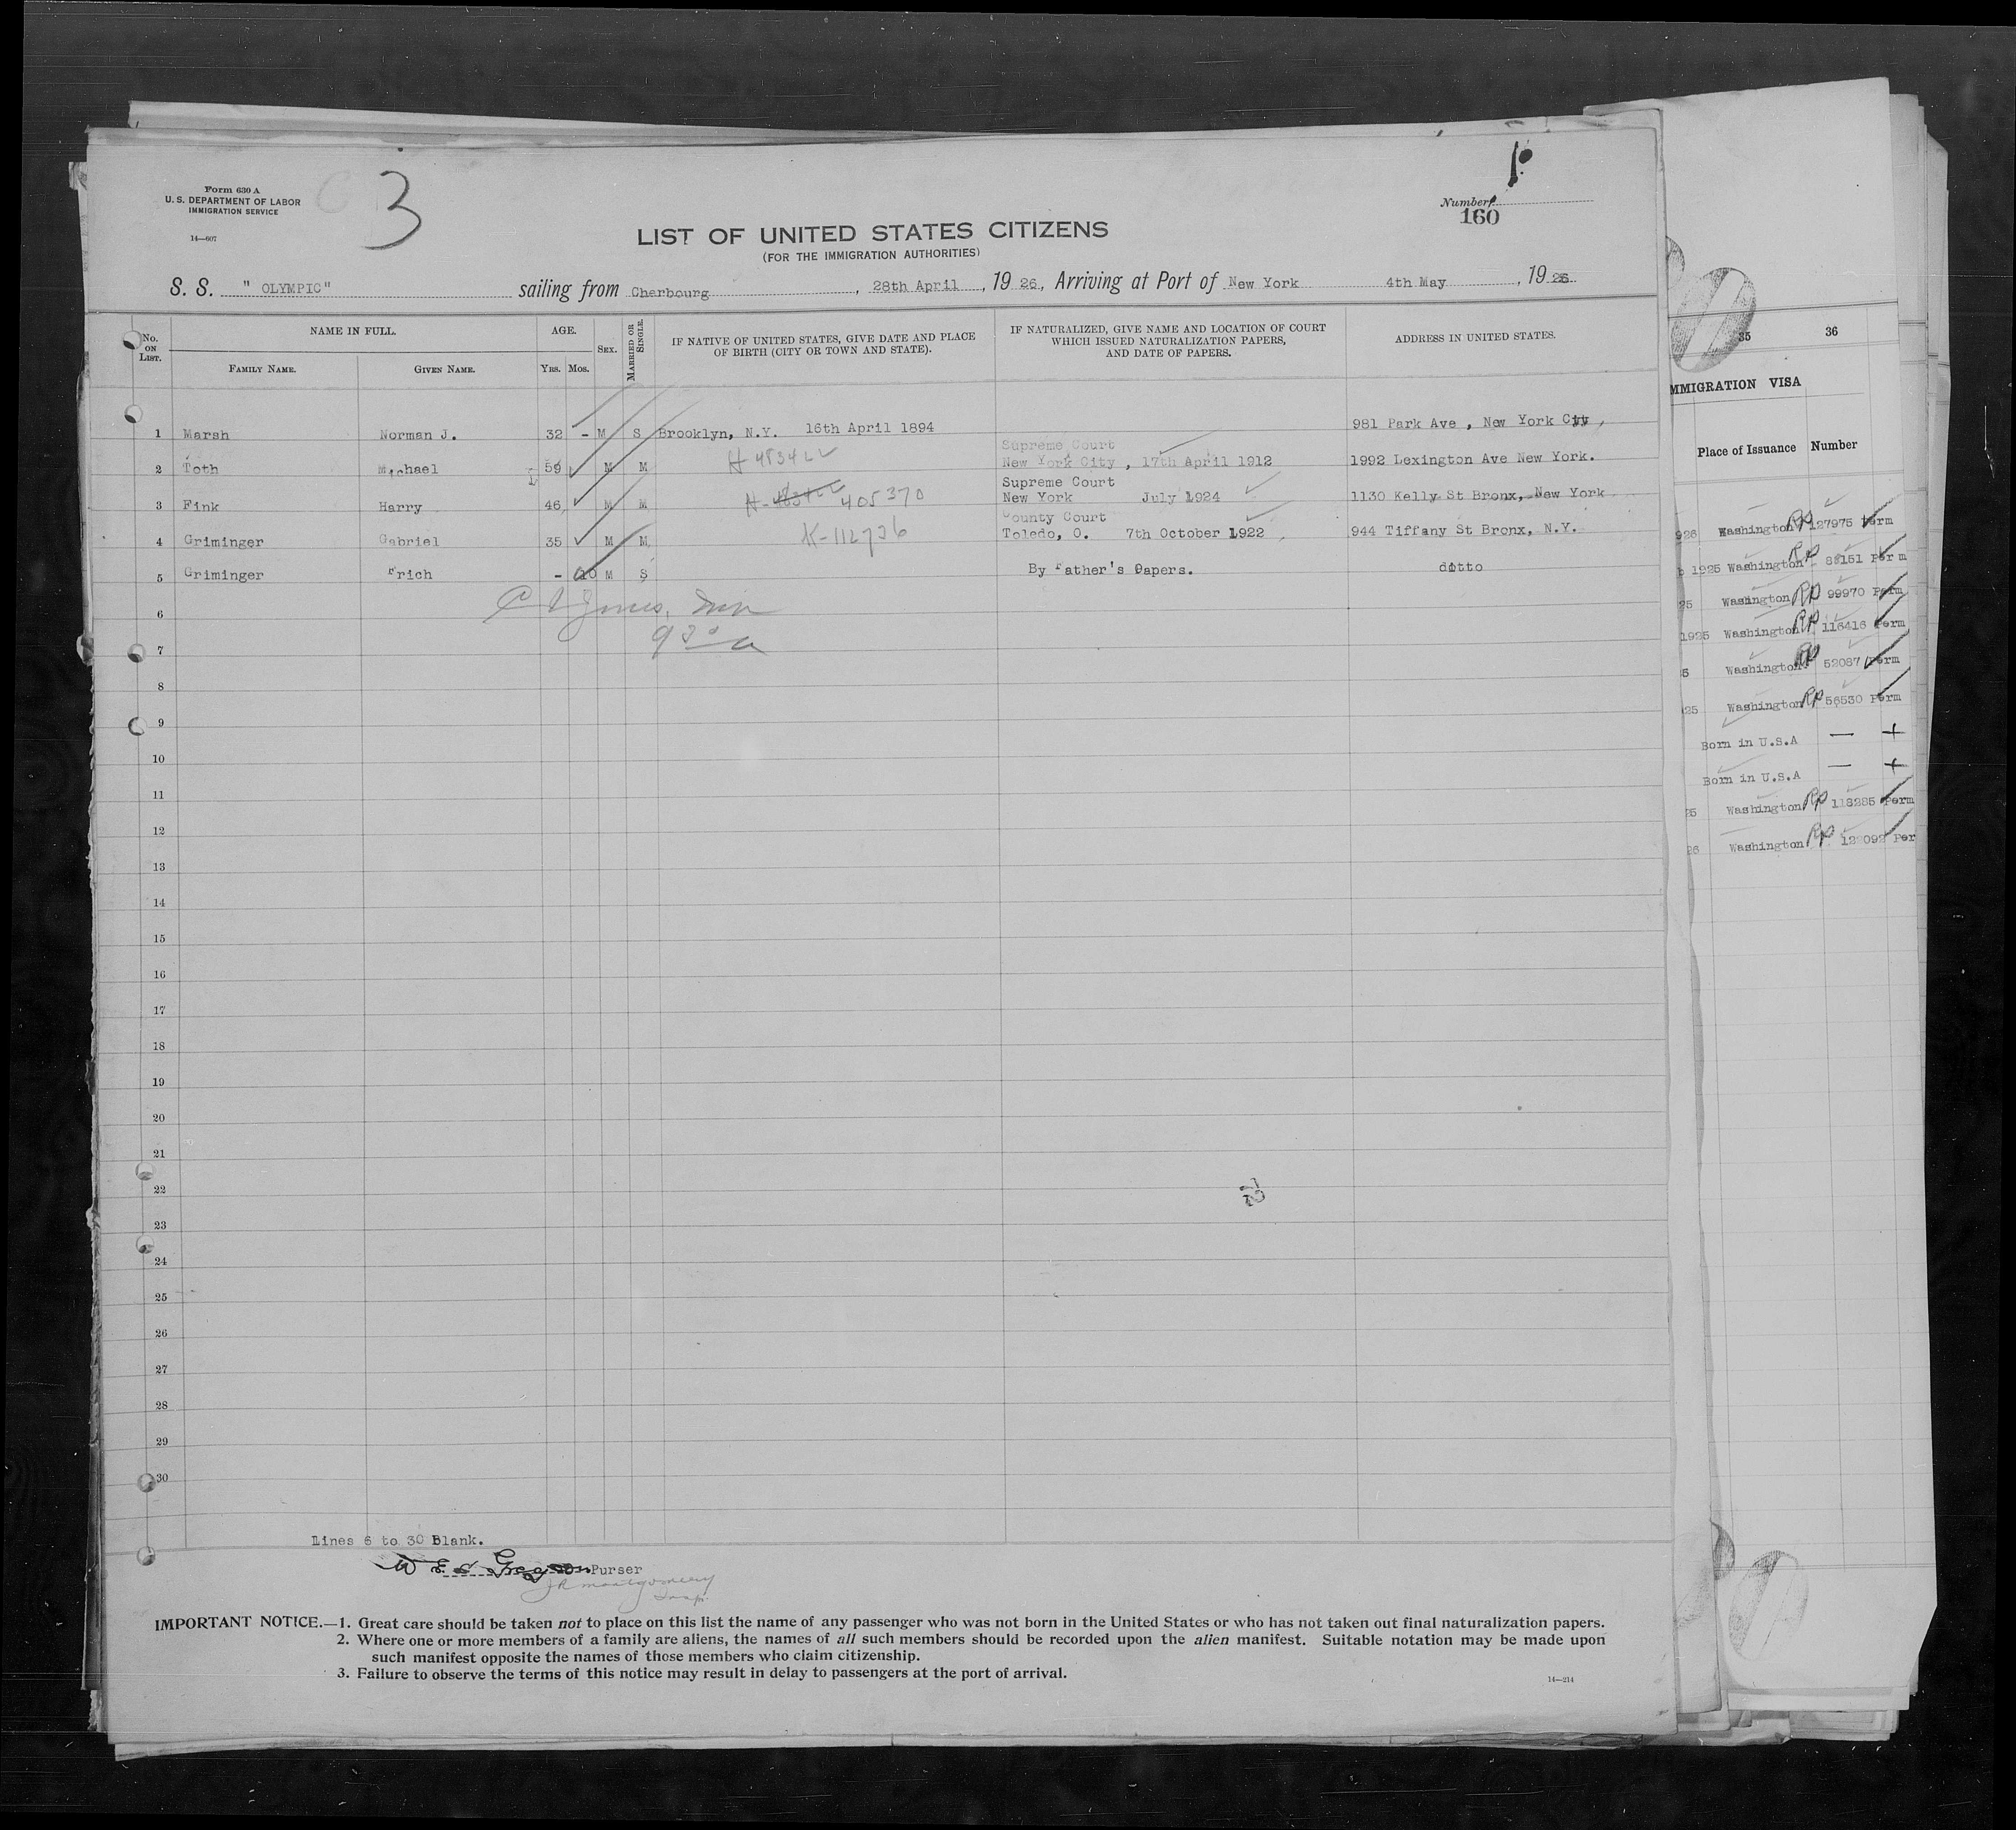 Form 630 A
U. S. DEPARTMENT OF LABOR
IMMIGRATION SERVICE
14—607
3
1.
Number
160
LIST OF UNITED STATES CITIZENS
(FOR THE IMMIGRATION AUTHORITIES)
S. S. " OLYMPIC" sailing from Cherbourg, 28th April, 19 26, Arriving at Port of New York 4th May, 19 26.
No. ON LIST. NAME IN FULL. FAMILY NAME. GIVEN NAME. AGE. YRS. MOS. SEX. MARRIED OR SINGLE. IF NATIVE OF UNITED STATES, GIVE DATE AND PLACE OF BIRTH (CITY OR TOWN AND STATE). IF NATURALIZED, GIVE NAME AND LOCATION OF COURT WHICH ISSUED NATURALIZATION PAPERS, AND DATE OF PAPERS. ADDRESS IN UNITED STATES.
1 Marsh Norman J. 32 - M S Brooklyn, N.Y. 16th April 1894 981 Park Ave , New York City ,
2 Toth Michael 59 M M Supreme Court
New York City , 17th April 1912 1992 Lexington Ave New York.
3 Fink Harry 46 M M 405370 Supreme Court
New York July 1924 1130 Kelly St Bronx, New York
4 Griminger Gabriel 35 M M K-112736 County Court
Toledo, O. 7th October 1922 944 Tiffany St Bronx, N.Y.
5 Griminger Erich - 10 M S By Father's Papers. ditto
6
7
8
9
10
11
12
13
14
15
16
17
18
19
20
21
22
23
24
25
26
27
28
29
30
Lines 6 to 30 Blank.
Purser
JR Montgomery
Insp.
IMPORTANT NOTICE.—1. Great care should be taken not to place on this list the name of any passenger who was not born in the United States or who has not taken out final naturalization papers.
2. Where one or more members of a family are aliens, the names of all such members should be recorded upon the alien manifest. Suitable notation may be made upon
such manifest opposite the names of those members who claim citizenship.
3. Failure to observe the terms of this notice may result in delay to passengers at the port of arrival.
14—214
35 36
MMIGRATION VISA
Place of Issuance Number
926 Washington RP 127975 Perm
1925 Washington RP 151 Perm
25 Washington RP 99970 Perm
1925 Washington RP 116416 Perm
5 Washington RP 52087 Perm
25 Washington RP 56530 Perm
Born in U.S.A — +
Born in U.S.A — +
25 Washington RP 118285 Perm
26 Washington RP Per